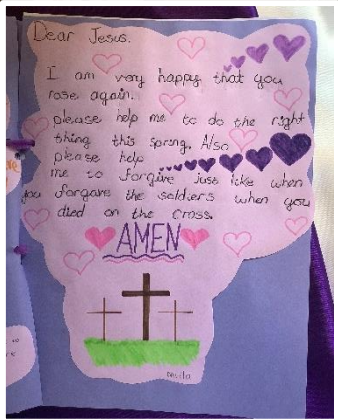 Dear Jesus.
I am very happy that you
rose again.
please help me to do the right
thing this spring. Also
please help
me to forgive just like when
you forgave the soldiers when you
died on the cross.
AMEN